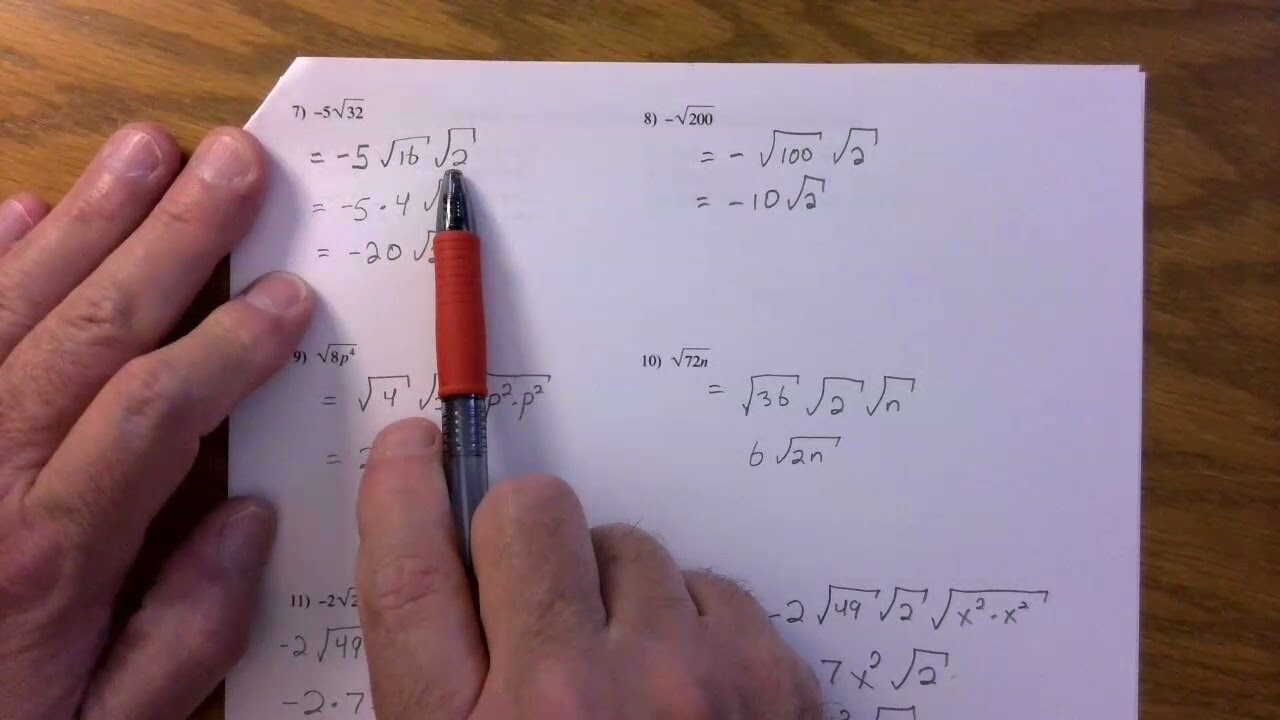 7) -5√32
= -5 √16 √2
= -5 · 4 √
= -20 √
8) -√200
= - √100 √2
= -10 √2
9) √8p⁴
= √4 √ p²·p²
= 2
10) √72n
= √36 √2 √n
6 √2n
11) -2√2
-2 √49
-2 · 7
-2 √49 √2 √x²·x²
7 x² √2